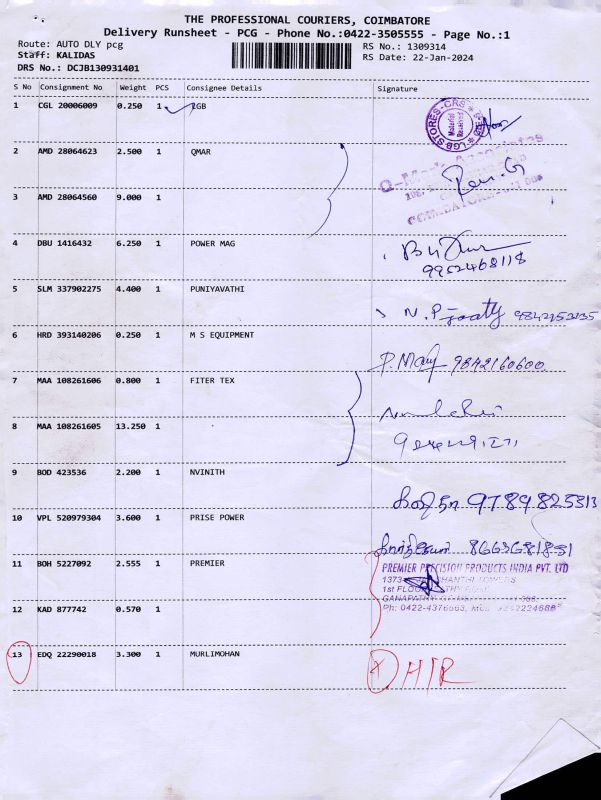 THE PROFESSIONAL COURIERS, COIMBATORE
Delivery Runsheet - PCG - Phone No.:0422-3505555 - Page No.:1
Route: AUTO DLY pcg
RS No.: 1309314
Staff: KALIDAS
RS Date: 22-Jan-2024
DRS No.: DCJB130931401
S No Consignment No Weight PCS Consignee Details Signature
1 CGL 20006009 0.250 1 RGB
LGB STORES-CRS
Material Received
2 AMD 28064623 2.500 1 QMAR
3 AMD 28064560 9.000 1
4 DBU 1416432 6.250 1 POWER MAG
9952468118
5 SLM 337902275 4.400 1 PUNIYAVATHI
N.P
6 HRD 393140206 0.250 1 M S EQUIPMENT
9842160600
7 MAA 108261606 0.800 1 FITER TEX
8 MAA 108261605 13.250 1
9 BOD 423536 2.200 1 NVINITH
10 VPL 520979304 3.600 1 PRISE POWER
11 BOH 5227092 2.555 1 PREMIER
PREMIER PRECISION PRODUCTS INDIA PVT. LTD
1st FLOOR
Ph: 0422-4376663,
12 KAD 877742 0.570 1
13 EDQ 22290018 3.300 1 MURLIMOHAN